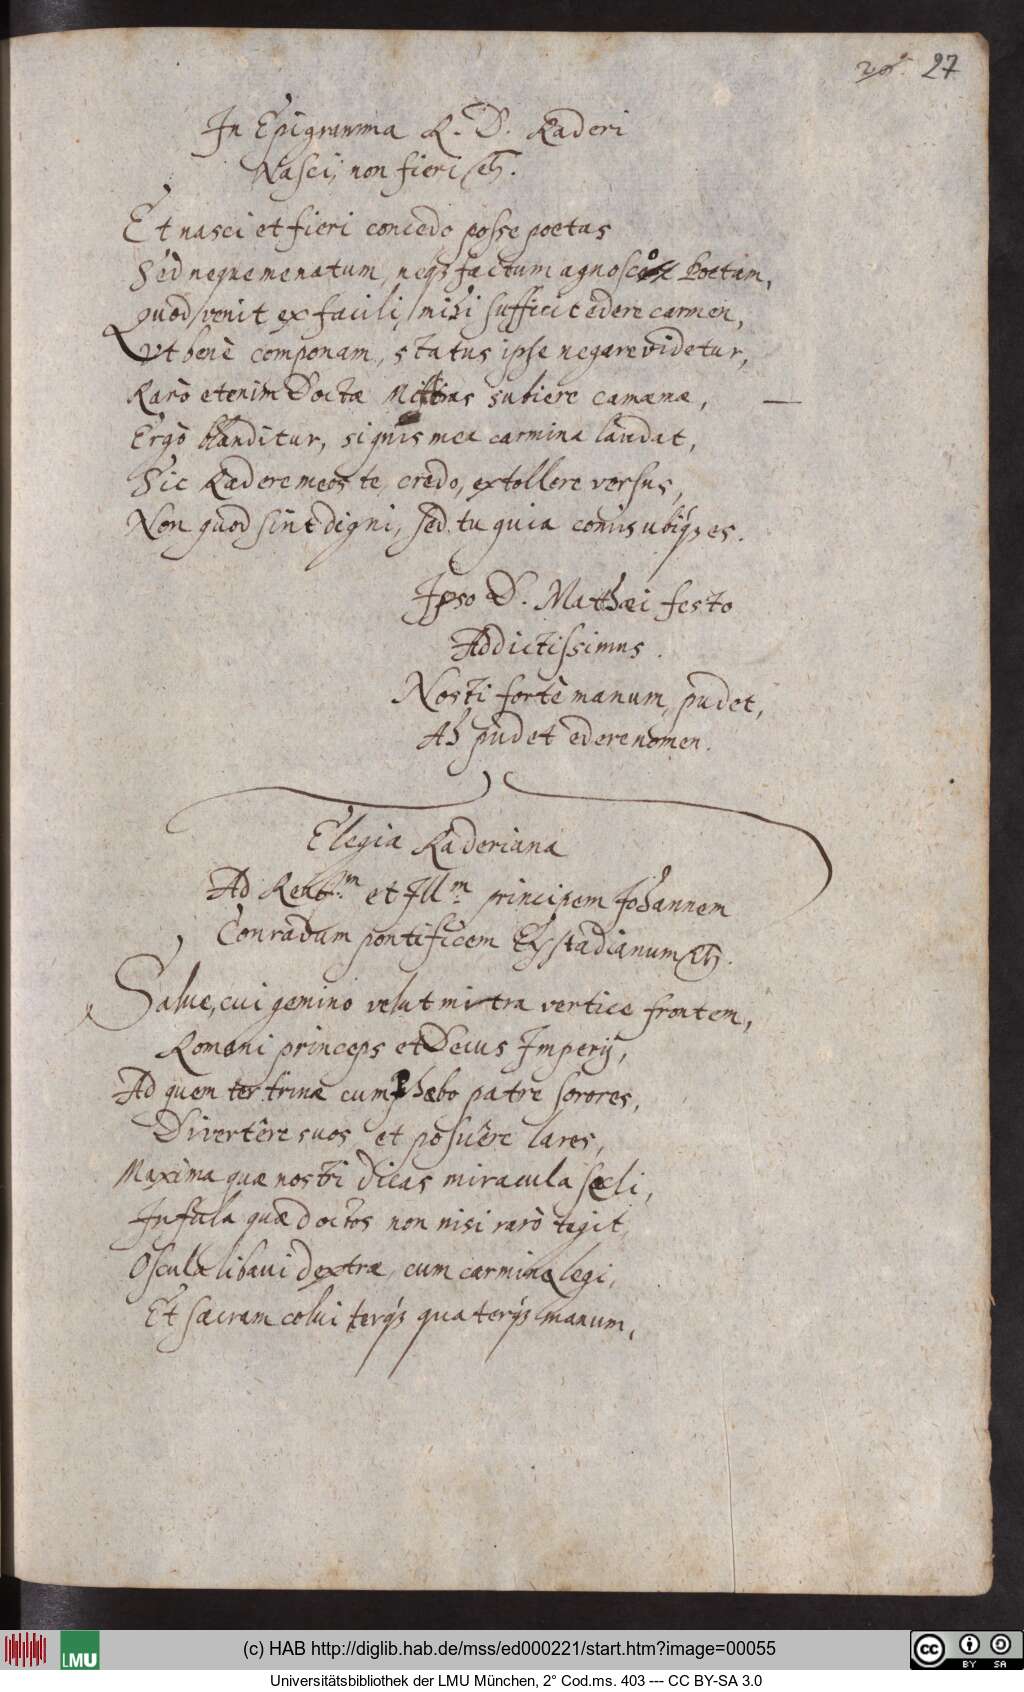 27
In Epigramma R. D. Raderi
Nasci, non fieri etc.
Et nasci et fieri concedo posse poetas
Sed neque me natum, neq3 factum agnosco Poetam,
Quod venit ex facili, mihi sufficit edere carmen,
Vt benè componam, status ipse negare videtur,
Rarò etenim Doctæ subiere camænæ,
Ergò blanditur, siquis mea carmina laudat,
Sic Radere meos te, credo, extollere versus,
Non quod sint digni, sed tu quia comis ubiq3 es.
Ipso D. Mathæi festo
Addictissimus.
Nosti fortè manum, pudet,
Ah pudet edere nomen.
Elegia Raderiana
Ad Reu.m et Ill.m principem Johannem
Conradum pontificem Eystadianum etc.
Salue, cui gemino velut mitra vertice frontem,
Romani princeps et Decus Imperij,
Ad quem ter trinæ cum Phæbo patre sorores,
Divertêre suos et posuêre lares,
Maxima quæ nostri dicas miracula sæcli,
Infula quæ doctos non nisi rarò tegit,
Oscula libaui dextræ, cum carmina legi,
Et sacram colui terq3 quaterq3 manum,
(c) HAB http://diglib.hab.de/mss/ed000221/start.htm?image=00055
LMU
cc BY SA
Universitätsbibliothek der LMU München, 2° Cod.ms. 403 --- CC BY-SA 3.0